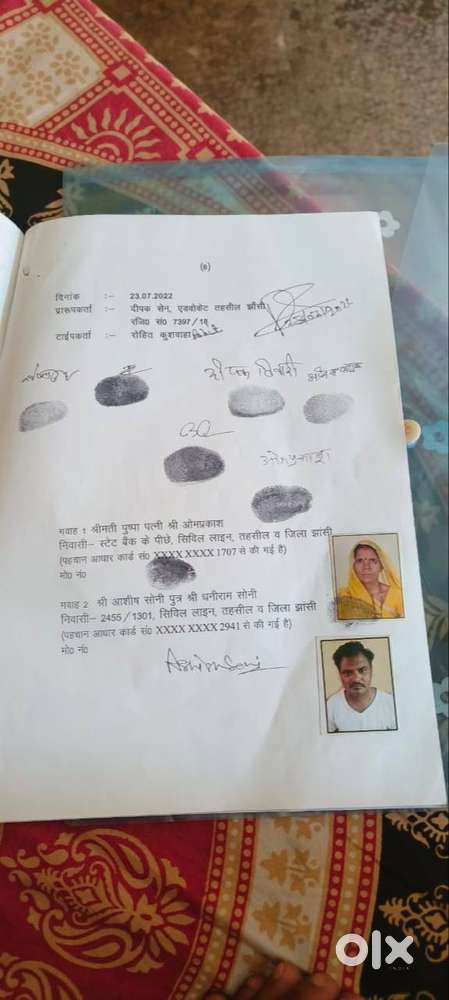 (6)
दिनांक :– 23.07.2022
प्रारूपकर्ता :– दीपक सेन, एडवोकेट तहसील झाँसी
रजि0 सं0 7397/16
टाईपकर्ता :– रोहित कुशवाहा
दीपक तिवारी
ओमप्रकाश
गवाह 1 श्रीमती पुष्पा पत्नी श्री ओमप्रकाश
निवासी– स्टेट बैंक के पीछे, सिविल लाइन, तहसील व जिला झांसी
(पहचान आधार कार्ड सं0 XXXX XXXX 1707 से की गई है)
मो0 नं0
गवाह 2 श्री आशीष सोनी पुत्र श्री धनीराम सोनी
निवासी– 2455/1301, सिविल लाइन, तहसील व जिला झांसी
(पहचान आधार कार्ड सं0 XXXX XXXX 2941 से की गई है)
मो0 नं0
Ashish Soni
olx
INDIA